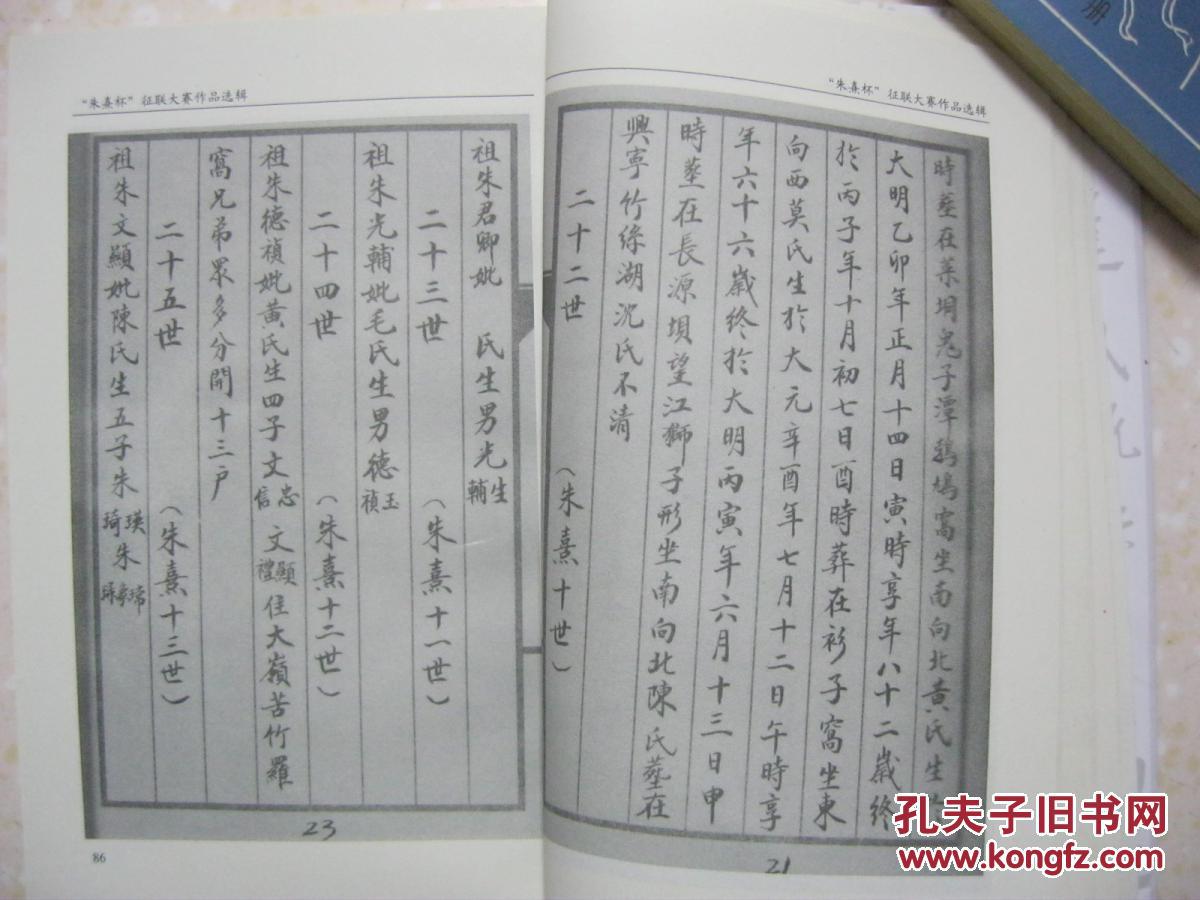 “朱熹杯”征联大赛作品选辑
時塟在葉坰鬼子潭鷄鳩窩坐南向北黄氏生
大明乙卯年正月十四日寅時享年八十二歲終
於丙子年十月初七日酉時葬在衫子窩坐東
向西莫氏生於大元辛酉年七月十二日午時享
年六十六歲終於大明丙寅年六月十三日申
時塟在長源垻望江獅子形坐南向北陳氏塟在
興寧竹絲湖沉氏不清
二十二世 (朱熹十世)
21
“朱熹杯”征联大赛作品选辑
祖朱君卿妣 氏生男光生輔
二十三世 (朱熹十一世)
祖朱光輔妣毛氏生男德玉禎
二十四世 (朱熹十二世)
祖朱德禎妣黄氏生四子文忠信文顯禮住大嶺苦竹羅
窩兄弟眾多分開十三户
二十五世 (朱熹十三世)
祖朱文顯妣陳氏生五子朱瑛琦朱
23
86
册
孔夫子旧书网
www.kongfz.com